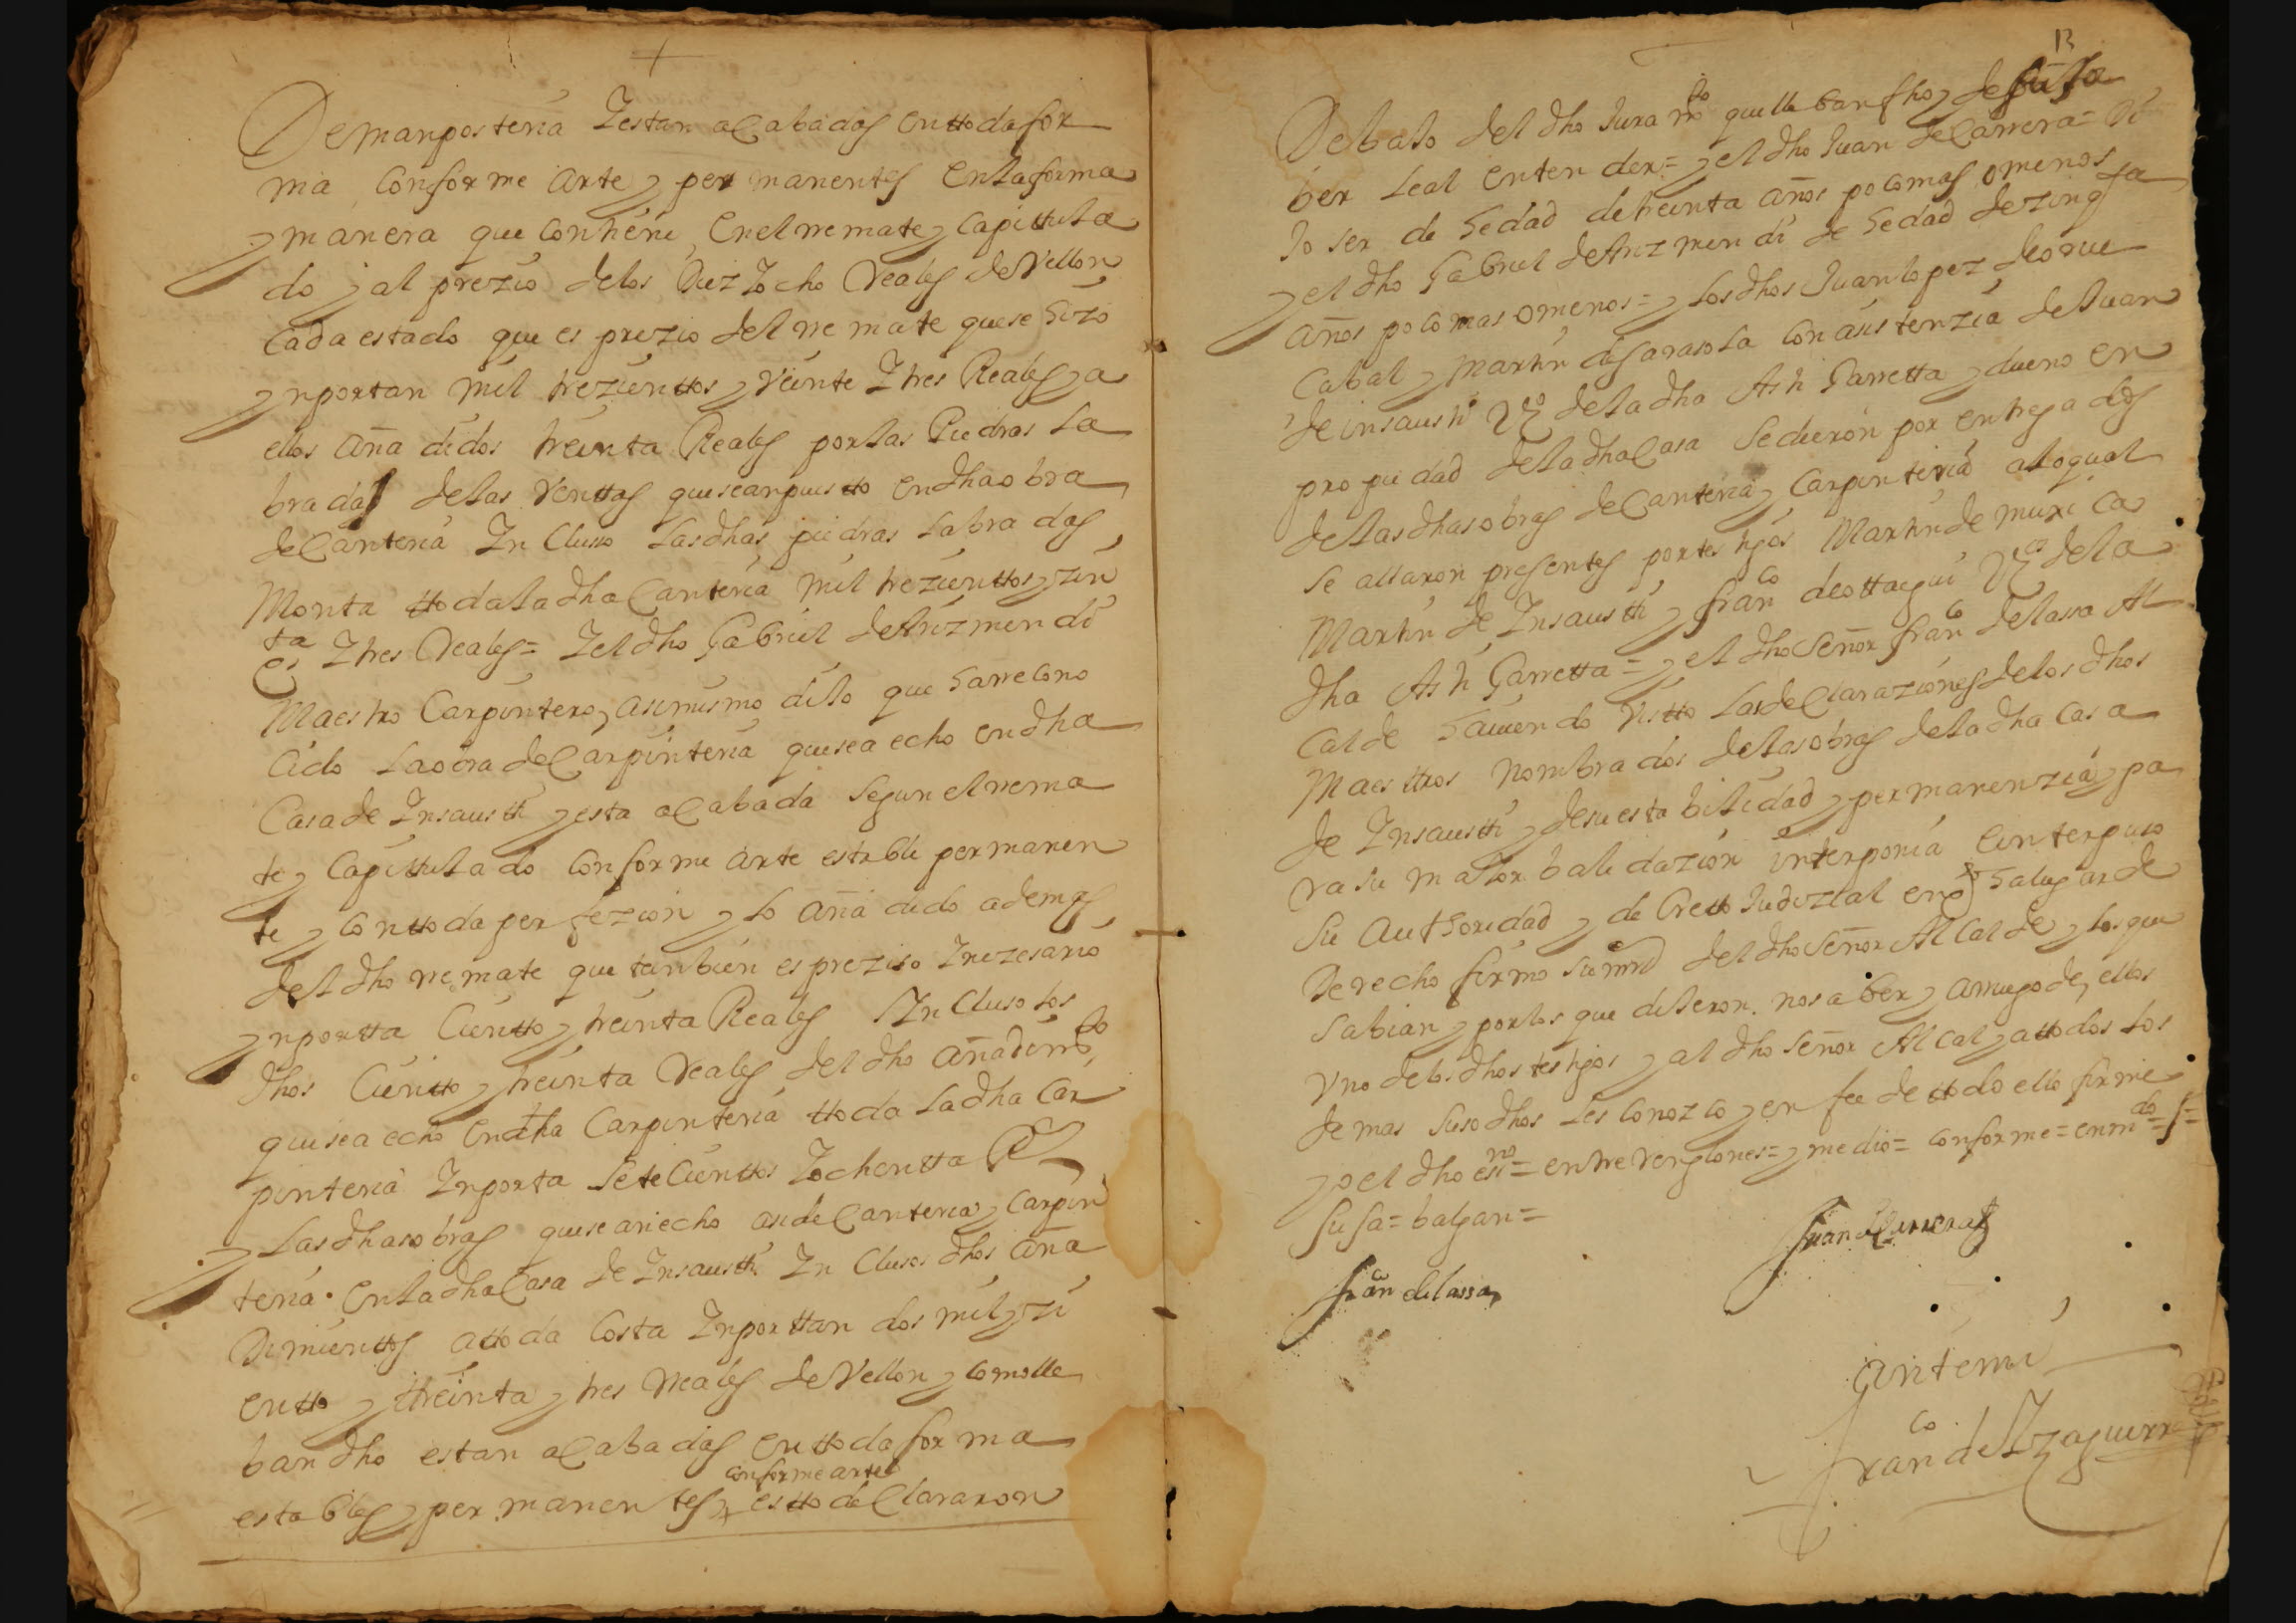 Demanposteria Zestan aCabadas enttodafor
ma conforme arte y permanentes enlaforma
y manera que Contiene Enelrremate y Capittula
do y al prezio delos Diez Zocho Reales de Vellon
Cada estado que es prezio del rremate quese hizo
ynportan mil trezienttos y Veinte Ztres Reales y a
ellos aña didos treinta Reales porlas Piedras la
bradas delas Venttas quesean puestto en dha obra
deCanteria In Cluso las dhas piedras labradas
Monta ttoda la dha Canteria mil trezienttos y zin
ta
es Ztres Reales = Zel dho Gabriel de Arizmendi
Maestro Carpintero, asimismo dijo que harrecono
Cido laobra deCarpinteria quesea echo en dha
Casa de Insaustti y esta aCabada segun el rrema
te y Capittulado conforme arte estable permanen
te y conttoda perfezion y lo aña dido ademas
del dho rremate que tanbien es preziso Znezesario
ynportta Cientto y treinta Reales In Cluso los
dhos Cientto y treinta reales del dho añadimto
quesea echo En dha Carpinteria ttoda la dha Car
pinteria Inporta SeteCienttos Zochentta Rs
y las dhas obras quesean echo asi de Canteria y Carpin
teria. En la dha Casa de Insaustti In Clusos dhos aña
Dimienttos attoda Costa Inporttan dos mil y zi
entto y ttreinta y tres Reales de Vellon y como lle
ban dho estan aCabadas enttoda forma
conforme arte
estables y permanentes y esttodeClararon
13
Debajo del dho Juramto que lleban fho y de su sa
ber leal entender = y el dho Juan de Carrera = Di
jo ser de hedad de treinta años poco mas omenos
y el dho Gabriel de Arizmendi de hedad de zinqta
años poco mas omenos = y los dhos Juan lopez de orue
Cabal y Martin de garasola con asistenzia de Juan
de insausti Vo de la dha Asti Garretta y dueno en
propiedad de la dha Casa se dieron por entregados
de las dhas obras de Canteria y Carpinteria alo qual
se allaron presentes por testigos Martin de muxi Ca
Martin de Insaustti y franco de ottaegui Vos de la
dha Asti Garretta = y el dho Señor franco de lassa Al
Calde hauiendo Vistto las deClaraziones de los dhos
Maesttros nombrados de las obras de la dha Casa
de Insaustti y de su estabilidad y permanenzia y pa
ra su maior balidazion interponia Einterpuso
Su Authoridad y de Cretto Judizial en qto ha lugar de
Derecho firmo su mrd del dho Señor Alcalde y los que
Sabian y por los que dijeron no saber y a rruego de ellos
Vno de los dhos testigos y al dho Señor Alcal y attodos los
demas susodhos les Conozco y en fee de ttodo ello firme
yo el dho esno = entre renglones = y medio = conforme = enmdo = s =
su sa = balgan =
Juan de Carrera
franco de lassa
Ante mi
Franco de Yzaguirre